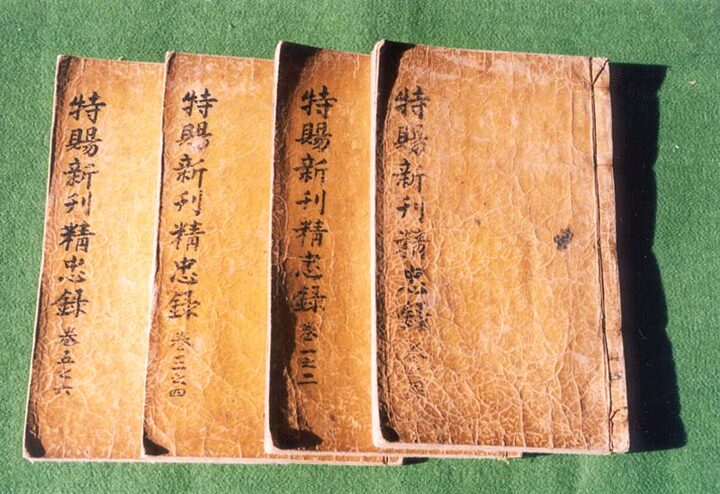 特賜新刋精忠錄
特賜新刋精忠錄 卷一之二
特賜新刋精忠錄 卷三之四
特賜新刋精忠錄 卷五之六